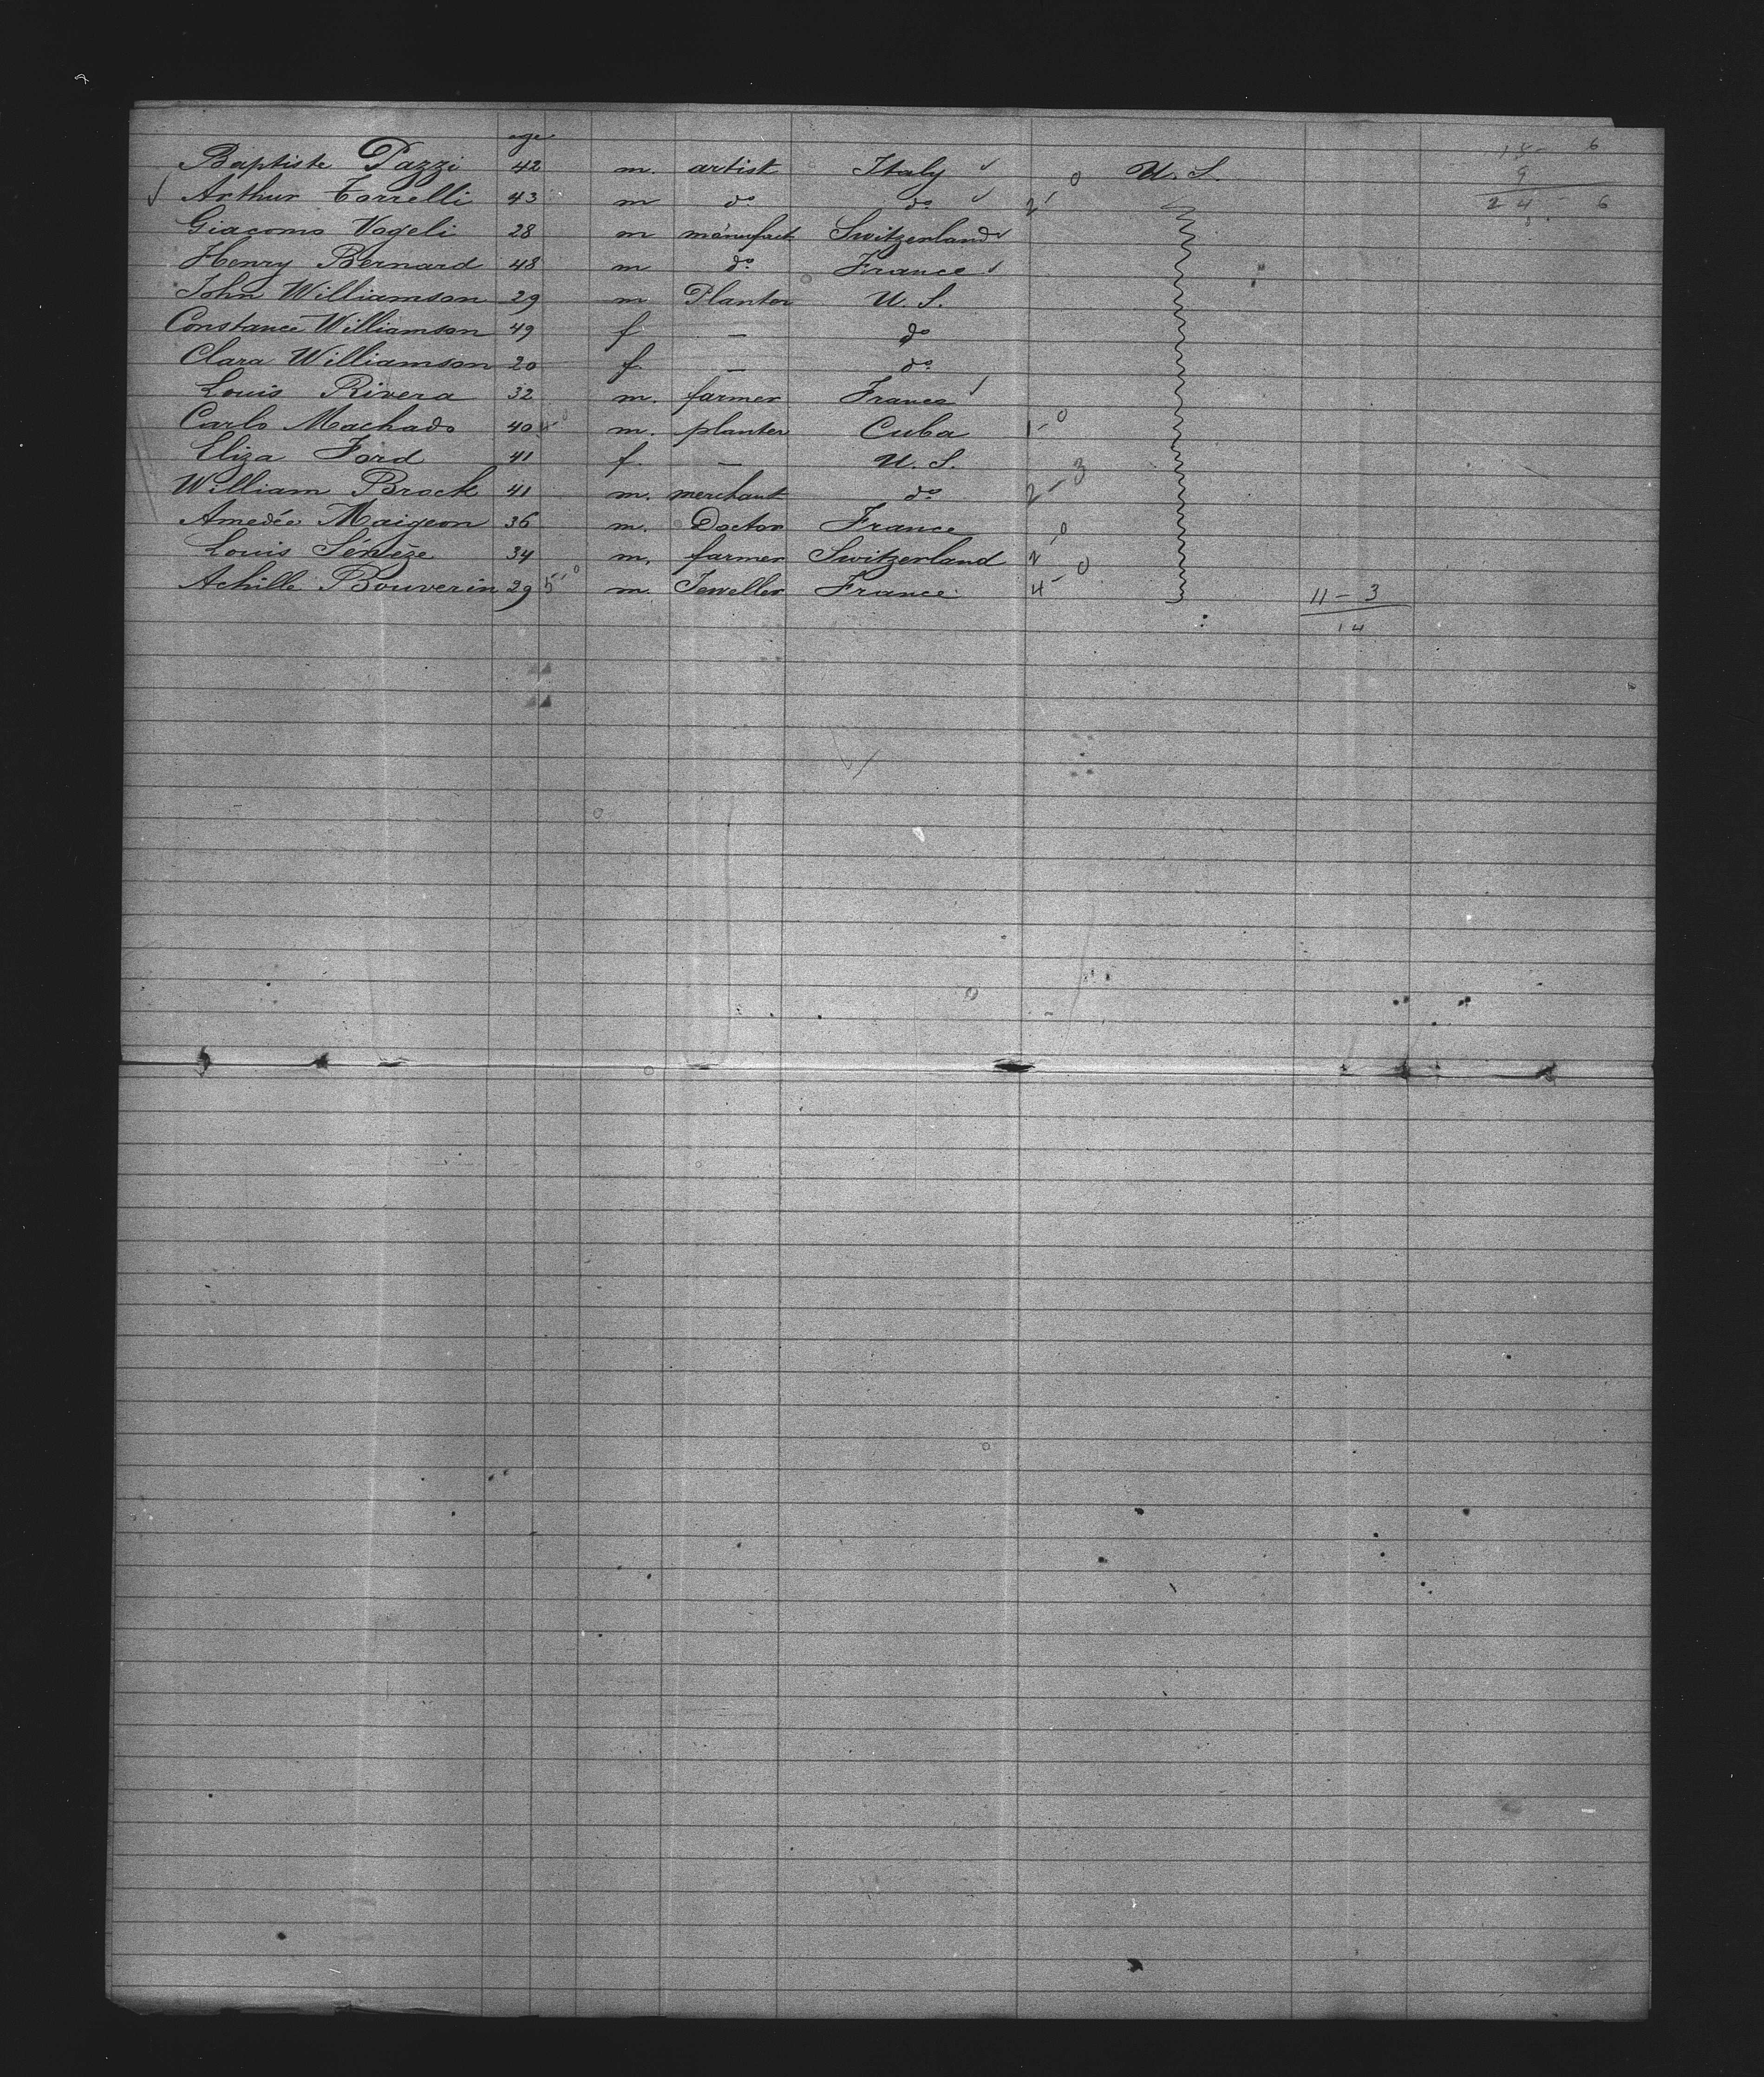 age
Baptiste Pazzi 42 m. artist Italy ✓ 0 U. S. 18 - 6
✓ Arthur Torrelli 43 m do do ✓ 2 9
24 - 6
Giacomo Vogeli 28 m manufact. Switzerland ✓
Henry Bernard 48 m do France ✓
John Williamson 29 m Planter U. S.
Constance Williamson 49 f — do
Clara Williamson 20 f. — do
Louis Rivera 32 m. farmer France ✓
Carlo Machado 40 m. planter Cuba 1 - 0
Eliza Ford 41 f. — U. S.
William Brock 41 m. merchant do 2 - 3
Amedée Maigeon 36 m. Doctor France
Louis Sénèze 34 m. farmer Switzerland 2 - 0
Achille Bouverin 29 5 - 0 m. Jeweller France 4 - 0 11 - 3
14